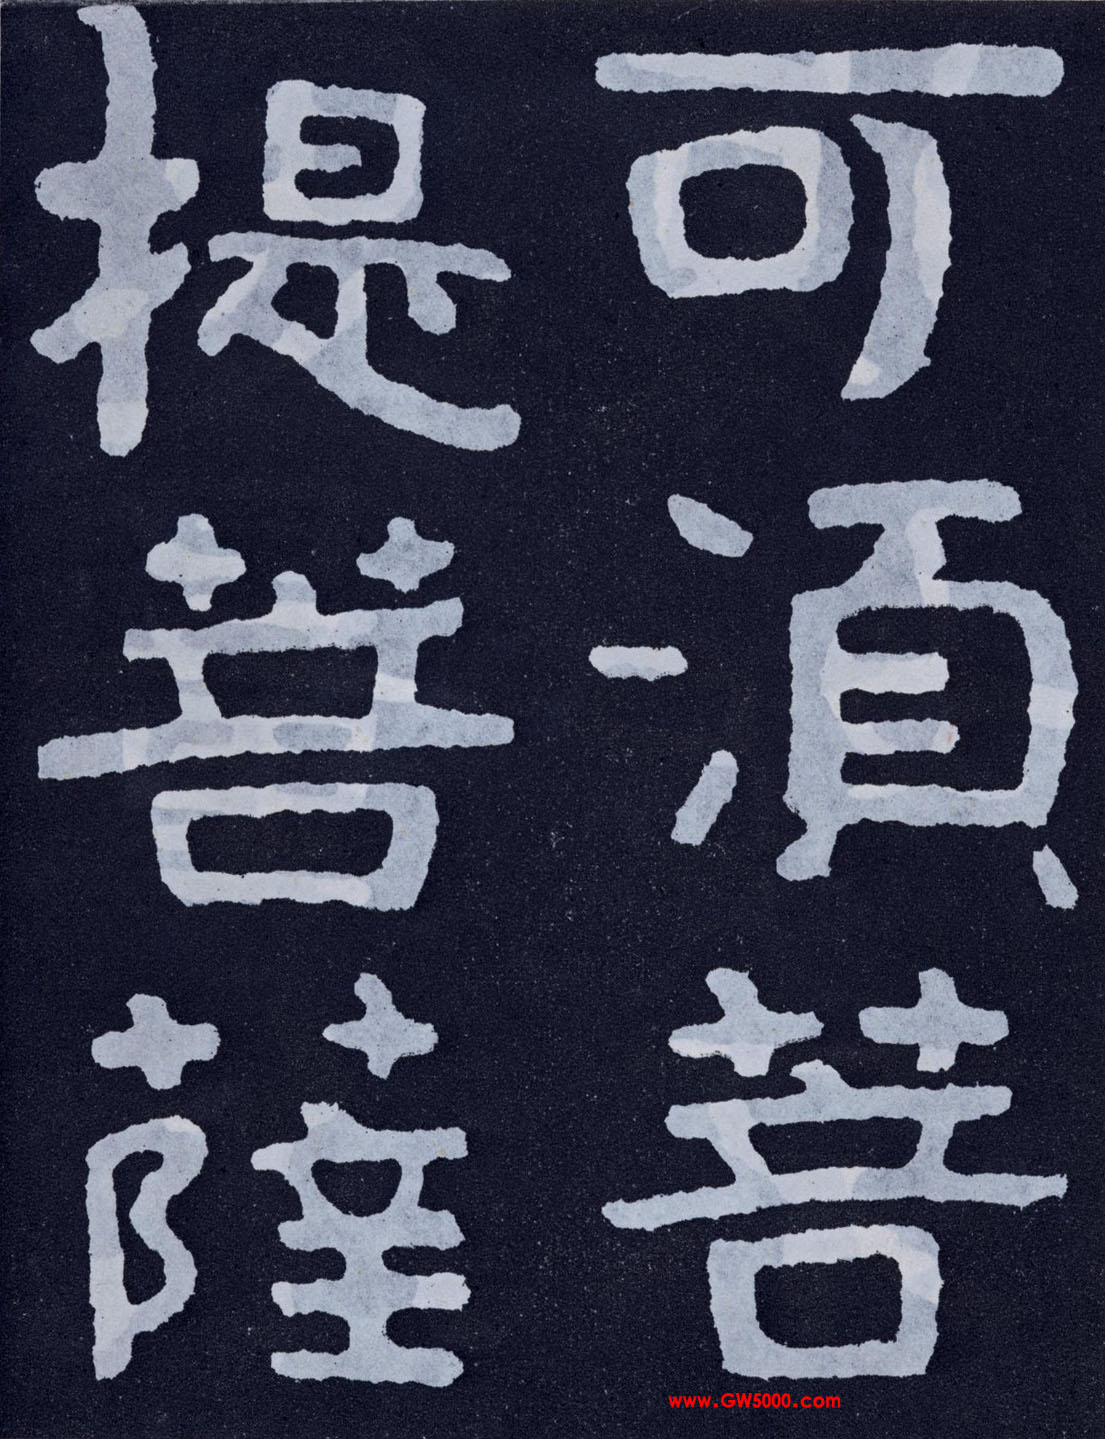 可湏菩
提菩薩
www.GW5000.com